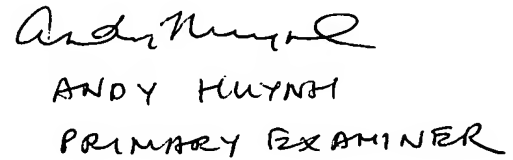 Andy Huynh
ANDY HUYNH
PRIMARY EXAMINER